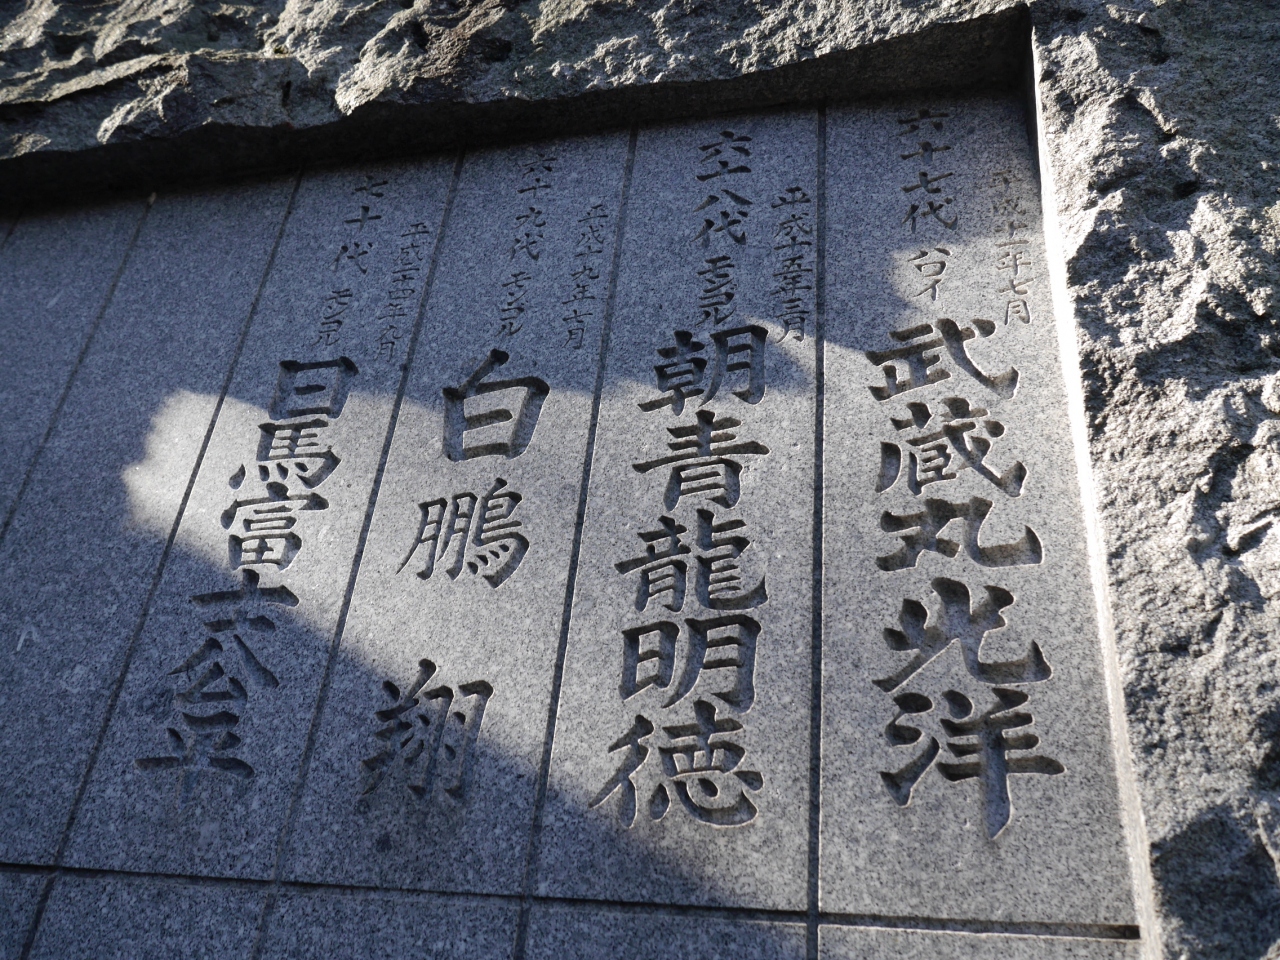 平成十一年七月
六十七代 ハワイ
武蔵丸光洋
平成十五年三月
六十八代 モンゴル
朝青龍明徳
平成十九年七月
六十九代 モンゴル
白鵬翔
平成二十四年九月
七十代 モンゴル
日馬富士公平